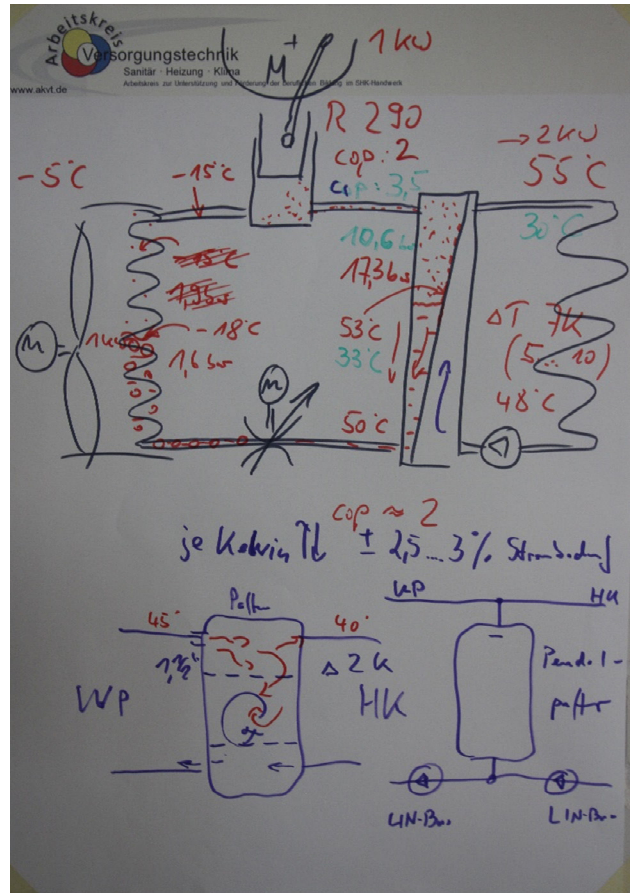 Arbeitskreis
Versorgungstechnik
Sanitär · Heizung · Klima
Arbeitskreis zur Unterstützung und Förderung der beruflichen Bildung im SHK-Handwerk
www.akvt.de
M
1 KW
R 290
cop: 2
cop: 3,5
→ 2 KW
55°C
-5°C
-15°C
30°C
10,6 bar
17,3 bar
-15°C
-18°C
1,6 bar
1 KW
M
53°C
33°C
ΔT 7K
(5...10)
48°C
M
50°C
cop ≈ 2
je Kelvin ± 2,5...3% Strombedarf
WP
HK
45°
40°
1,½"
Δ 2 K
WP
HK
Pendel-
puffer
LIN-
LIN-